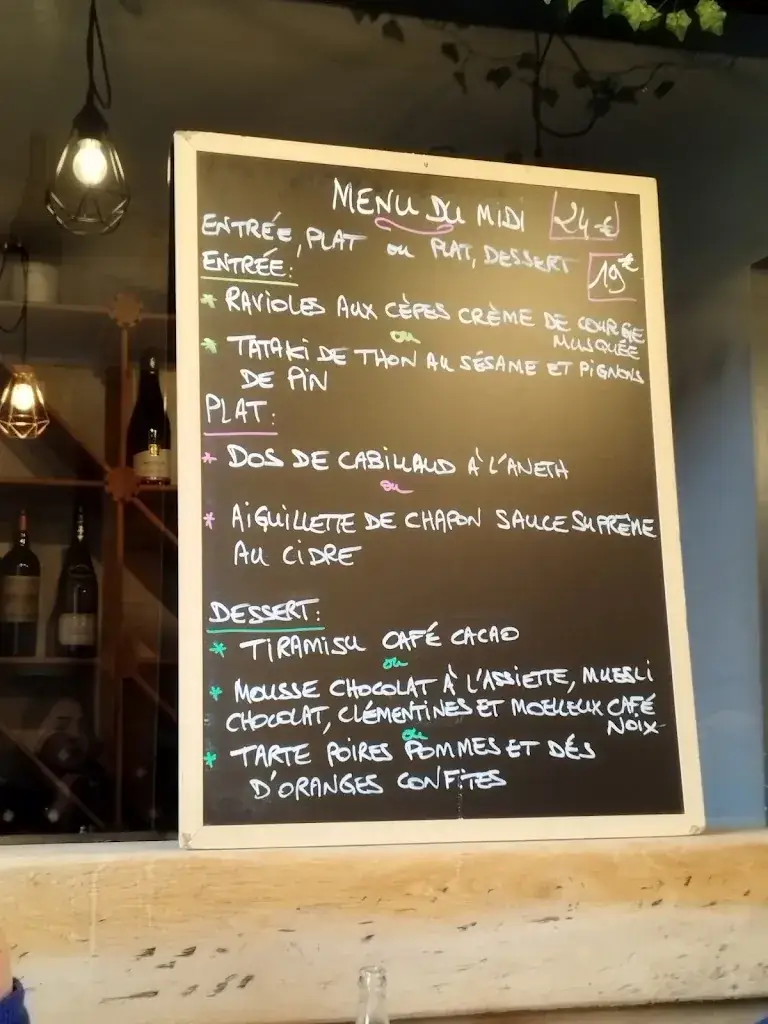 MENU DU MIDI 24€
ENTRÉE, PLAT ou PLAT, DESSERT 19€
ENTRÉE:
* RAVIOLES AUX CÈPES CRÈME DE COURGE
MUSQUÉE
ou
* TATAKI DE THON AU SÉSAME ET PIGNONS
DE PIN
PLAT:
* DOS DE CABILLAUD À L'ANETH
ou
* AIGUILLETTE DE CHAPON SAUCE SUPRÊME
AU CIDRE
DESSERT:
* TIRAMISU CAFÉ CACAO
ou
* MOUSSE CHOCOLAT À L'ASSIETTE, MUESLI
CHOCOLAT, CLÉMENTINES ET MOELLEUX CAFÉ
NOIX
ou
* TARTE POIRES POMMES ET DÉS
D'ORANGES CONFITES